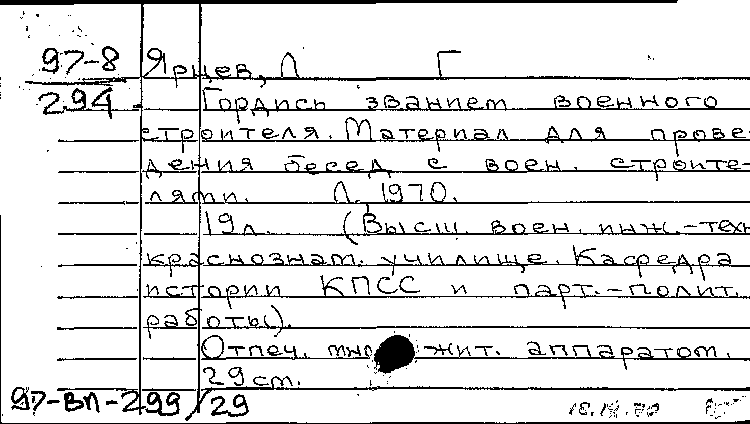 97-8 Ярцев, Л Г
294 Гордись званием военного
строителя. Материал для прове-
дения бесед с воен. строите-
лями. Л., 1970.
19л. (Высш. воен. инж.-техн
краснознам. училище. Кафедра
истории КПСС и парт.-полит.
работы).
Отпеч. множит. аппаратом.
29см.
97-ВП-299/29